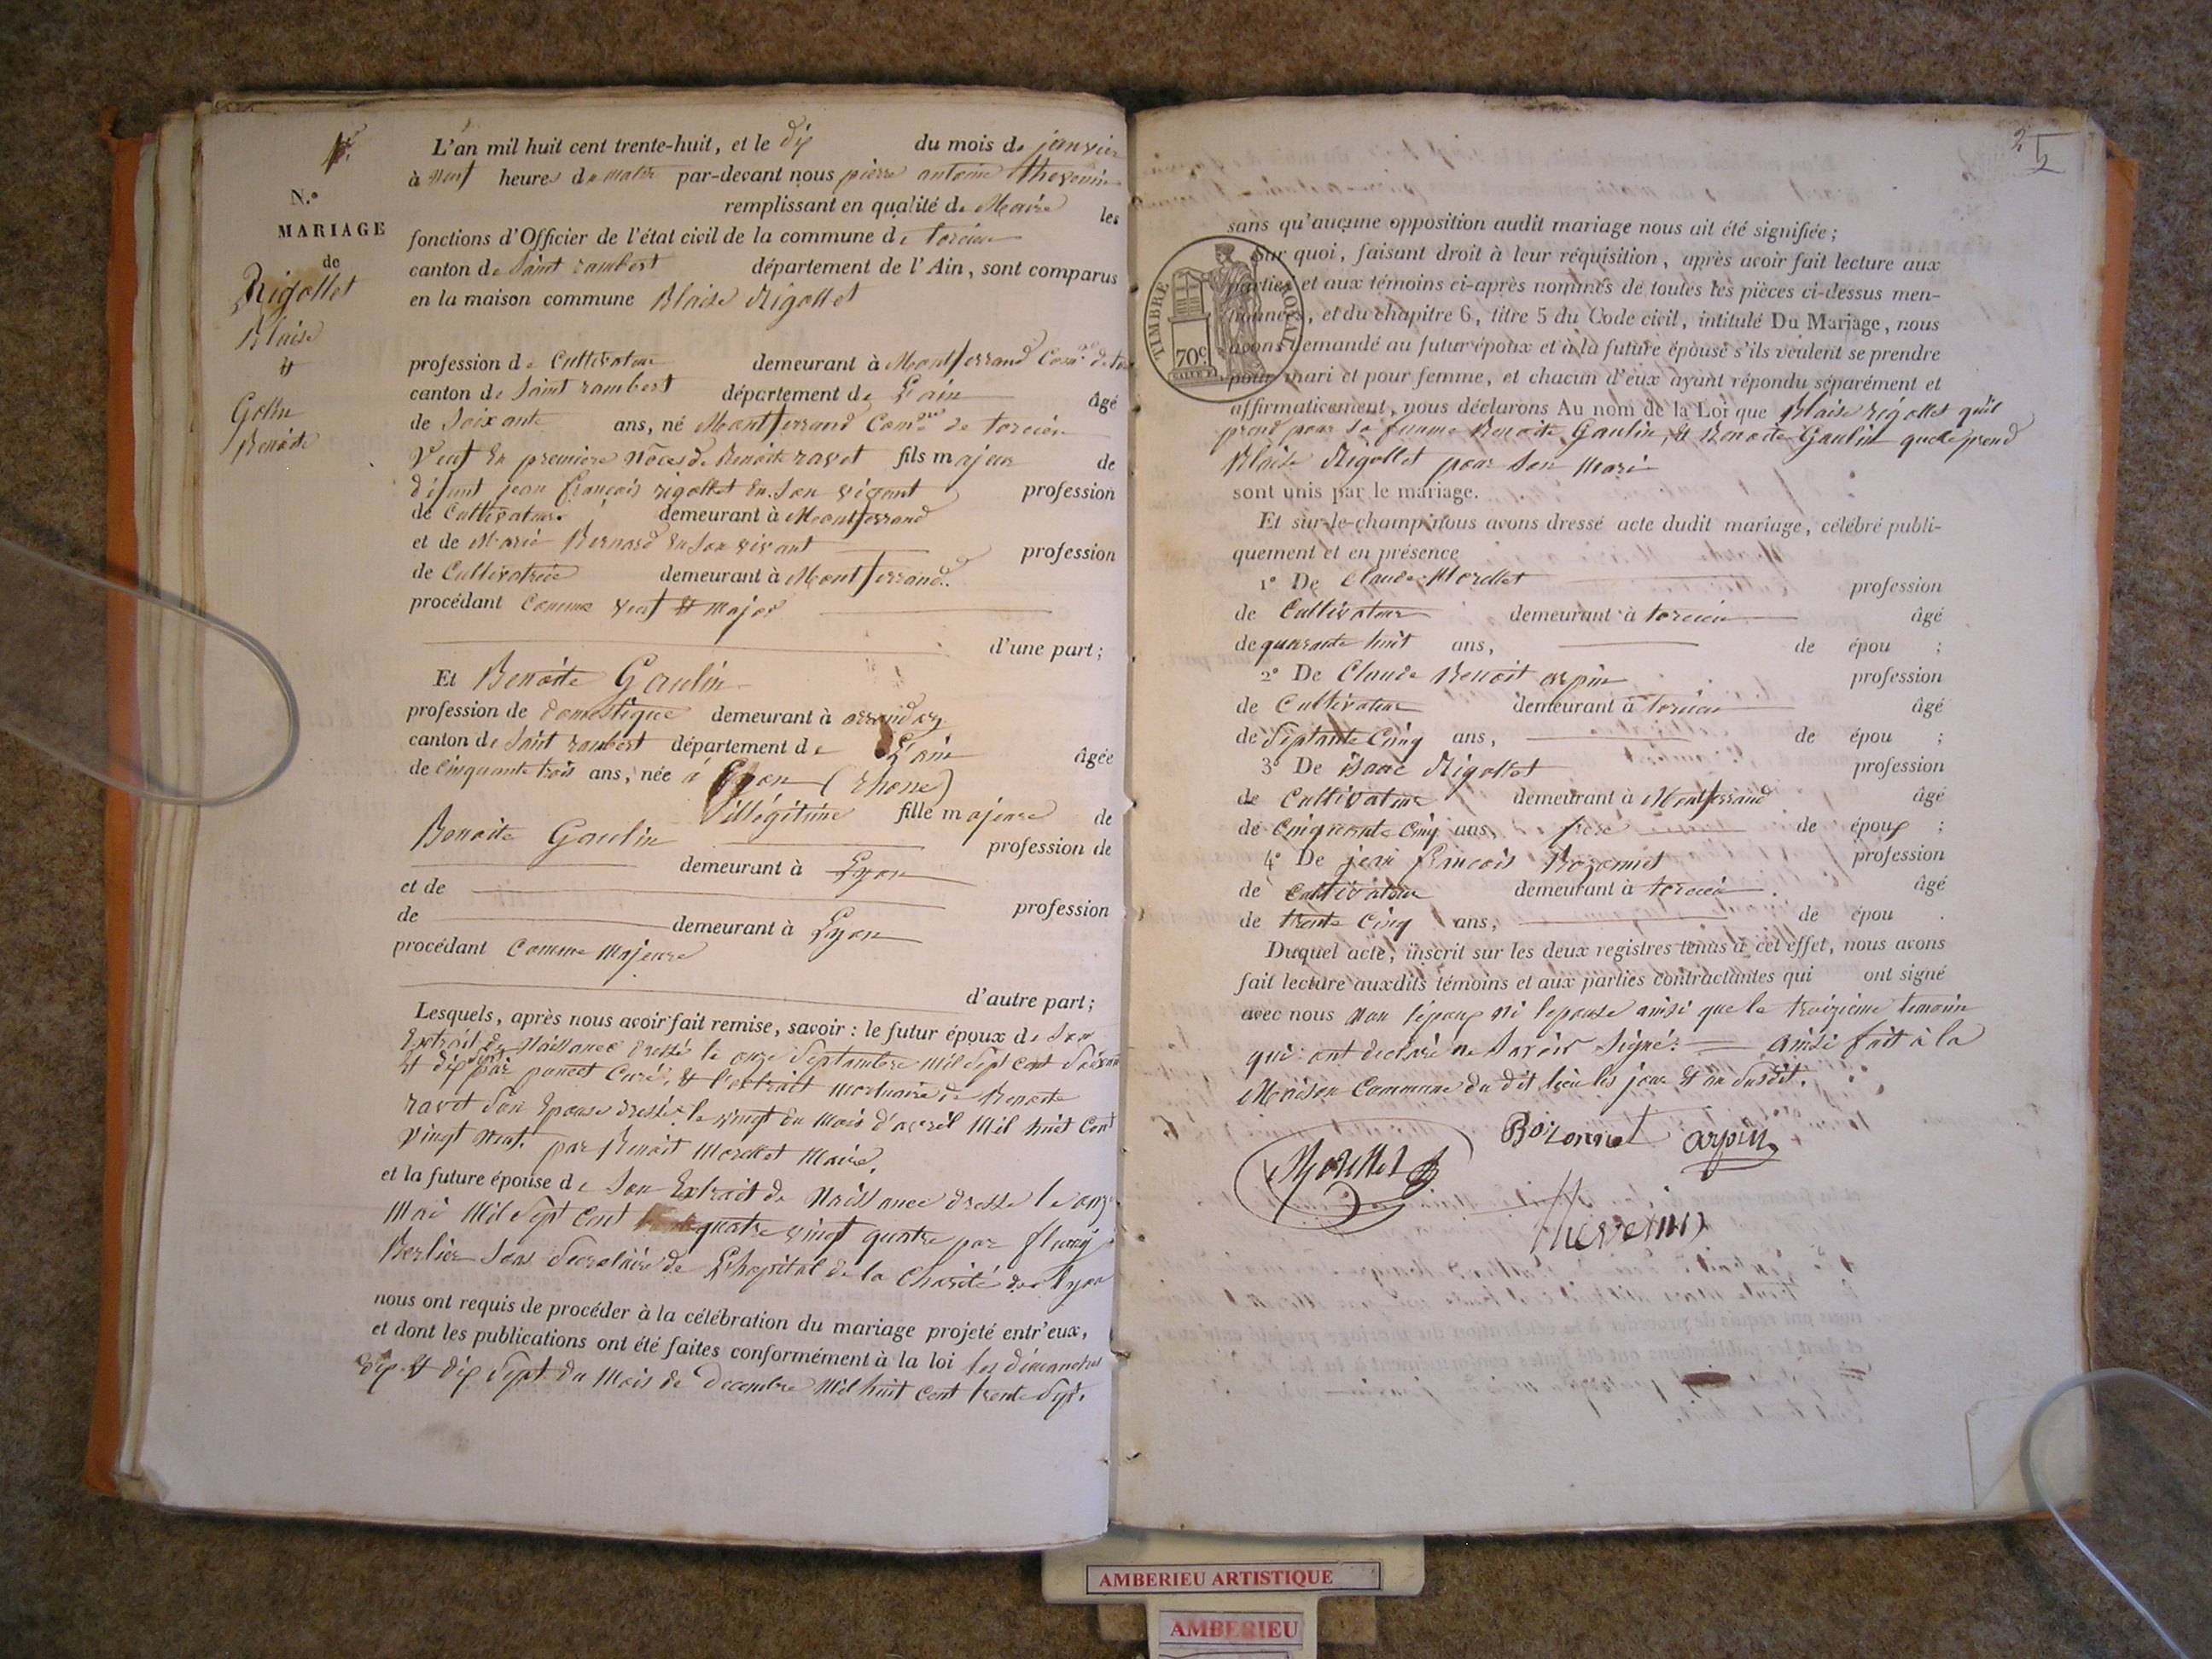 1er
N.°
MARIAGE
de
Rigollet
Blaise
et
Golin
Benoite
L'an mil huit cent trente-huit, et le dix du mois de janvier
à neuf heures du matin par-devant nous pierre antoine thevenin
remplissant en qualité de Maire les
fonctions d'Officier de l'état civil de la commune de torcieu
canton de Saint rambert département de l'Ain, sont comparus
en la maison commune Blaise Rigollet
profession de Cultivateur demeurant à Montferrand Comne de
canton de Saint rambert département de L'ain âgé
de Soixante ans, né Montferrand Comne de torcieu
Veuf En premiere Noces de Benoite ravet fils majeur de
défunt jean françois rigollet En Son vivant profession
de Cultivateur demeurant à Montferrand
et de Marie Bernard En Son vivant profession
de Cultivatrice demeurant à Montferrand
procédant Comme veuf et major
d'une part;
Et Benoite Gaulin
profession de domestique demeurant à arandas
canton de Saint rambert département de L'ain âgée
de Cinquante trois ans, née à Lyon (rhone)
illégitime fille majeure de
Benoite Gaulin profession de
demeurant à Lyon
et de profession
de demeurant à Lyon
procédant Comme Majeure
d'autre part;
Lesquels, après nous avoir fait remise, savoir: le futur époux de Son
Extrait de Naissance dressé le onze Septembre Mil Sept Cent Soixante
Et dix sept par poncet Curé, & l'extrait mortuaire de Benoite
ravet Son Epouse dressé le vingt du Mois d'avril Mil huit Cent
Vingt Neuf par Benoit Morellet Maire.
et la future épouse de Son Extrait de Naissance dressé le onze
Mai Mil Sept Cent quatre vingt quatre par fleury
Berlier Sous Secretaire de L'hopital de la Charité de Lyon
nous ont requis de procéder à la célébration du mariage projeté entr'eux,
et dont les publications ont été faites conformément à la loi les dimanches
dix & dix Sept du Mois de Decembre Mil huit Cent trente Sept.
2
2
TIMBRE ROYAL
70c
sans qu'aucune opposition audit mariage nous ait été signifiée;
Sur quoi, faisant droit à leur réquisition, après avoir fait lecture aux
parties et aux témoins ci-après nommés de toutes les pièces ci-dessus men-
tionnées, et du chapitre 6, titre 5 du Code civil, intitulé Du Mariage, nous
avons demandé au futur époux et à la future épouse s'ils veulent se prendre
pour mari et pour femme, et chacun d'eux ayant répondu séparément et
affirmativement, nous déclarons Au nom de la Loi que Blaise rigollet qu'il
prend pour Sa femme Benoite Gaulin, & Benoite Gaulin quelle prend
Blaise Rigollet pour Son Mari
sont unis par le mariage.
Et sur-le-champ nous avons dressé acte dudit mariage, célébré publi-
quement et en présence
1° De Claude Morellet profession
de Cultivateur demeurant à torcieu âgé
de quarante huit ans, de épou ;
2° De Claude Benoit arpin profession
de Cultivateur demeurant à torcieu âgé
de Septante Cinq ans, de épou ;
3° De isaac Rigollet profession
de Cultivateur demeurant à Montferrand âgé
de Cinquante Cinq ans, frère de époux ;
4° De jean francois Bozonnet profession
de Cultivateur demeurant à torcieu âgé
de trente Cinq ans, de épou .
Duquel acte, inscrit sur les deux registres tenus à cet effet, nous avons
fait lecture auxdits témoins et aux parties contractantes qui ont signé
avec nous Non l'époux Ni lepouse ainsi que le troizieme temoin
qui ont declaré ne Savoir Signé. ainsi fait à la
Maison Commune du dit lieu les jour et an Susdit.
Bozonnet arpin
Morellet
thevenin
AMBERIEU ARTISTIQUE
AMBERIEU